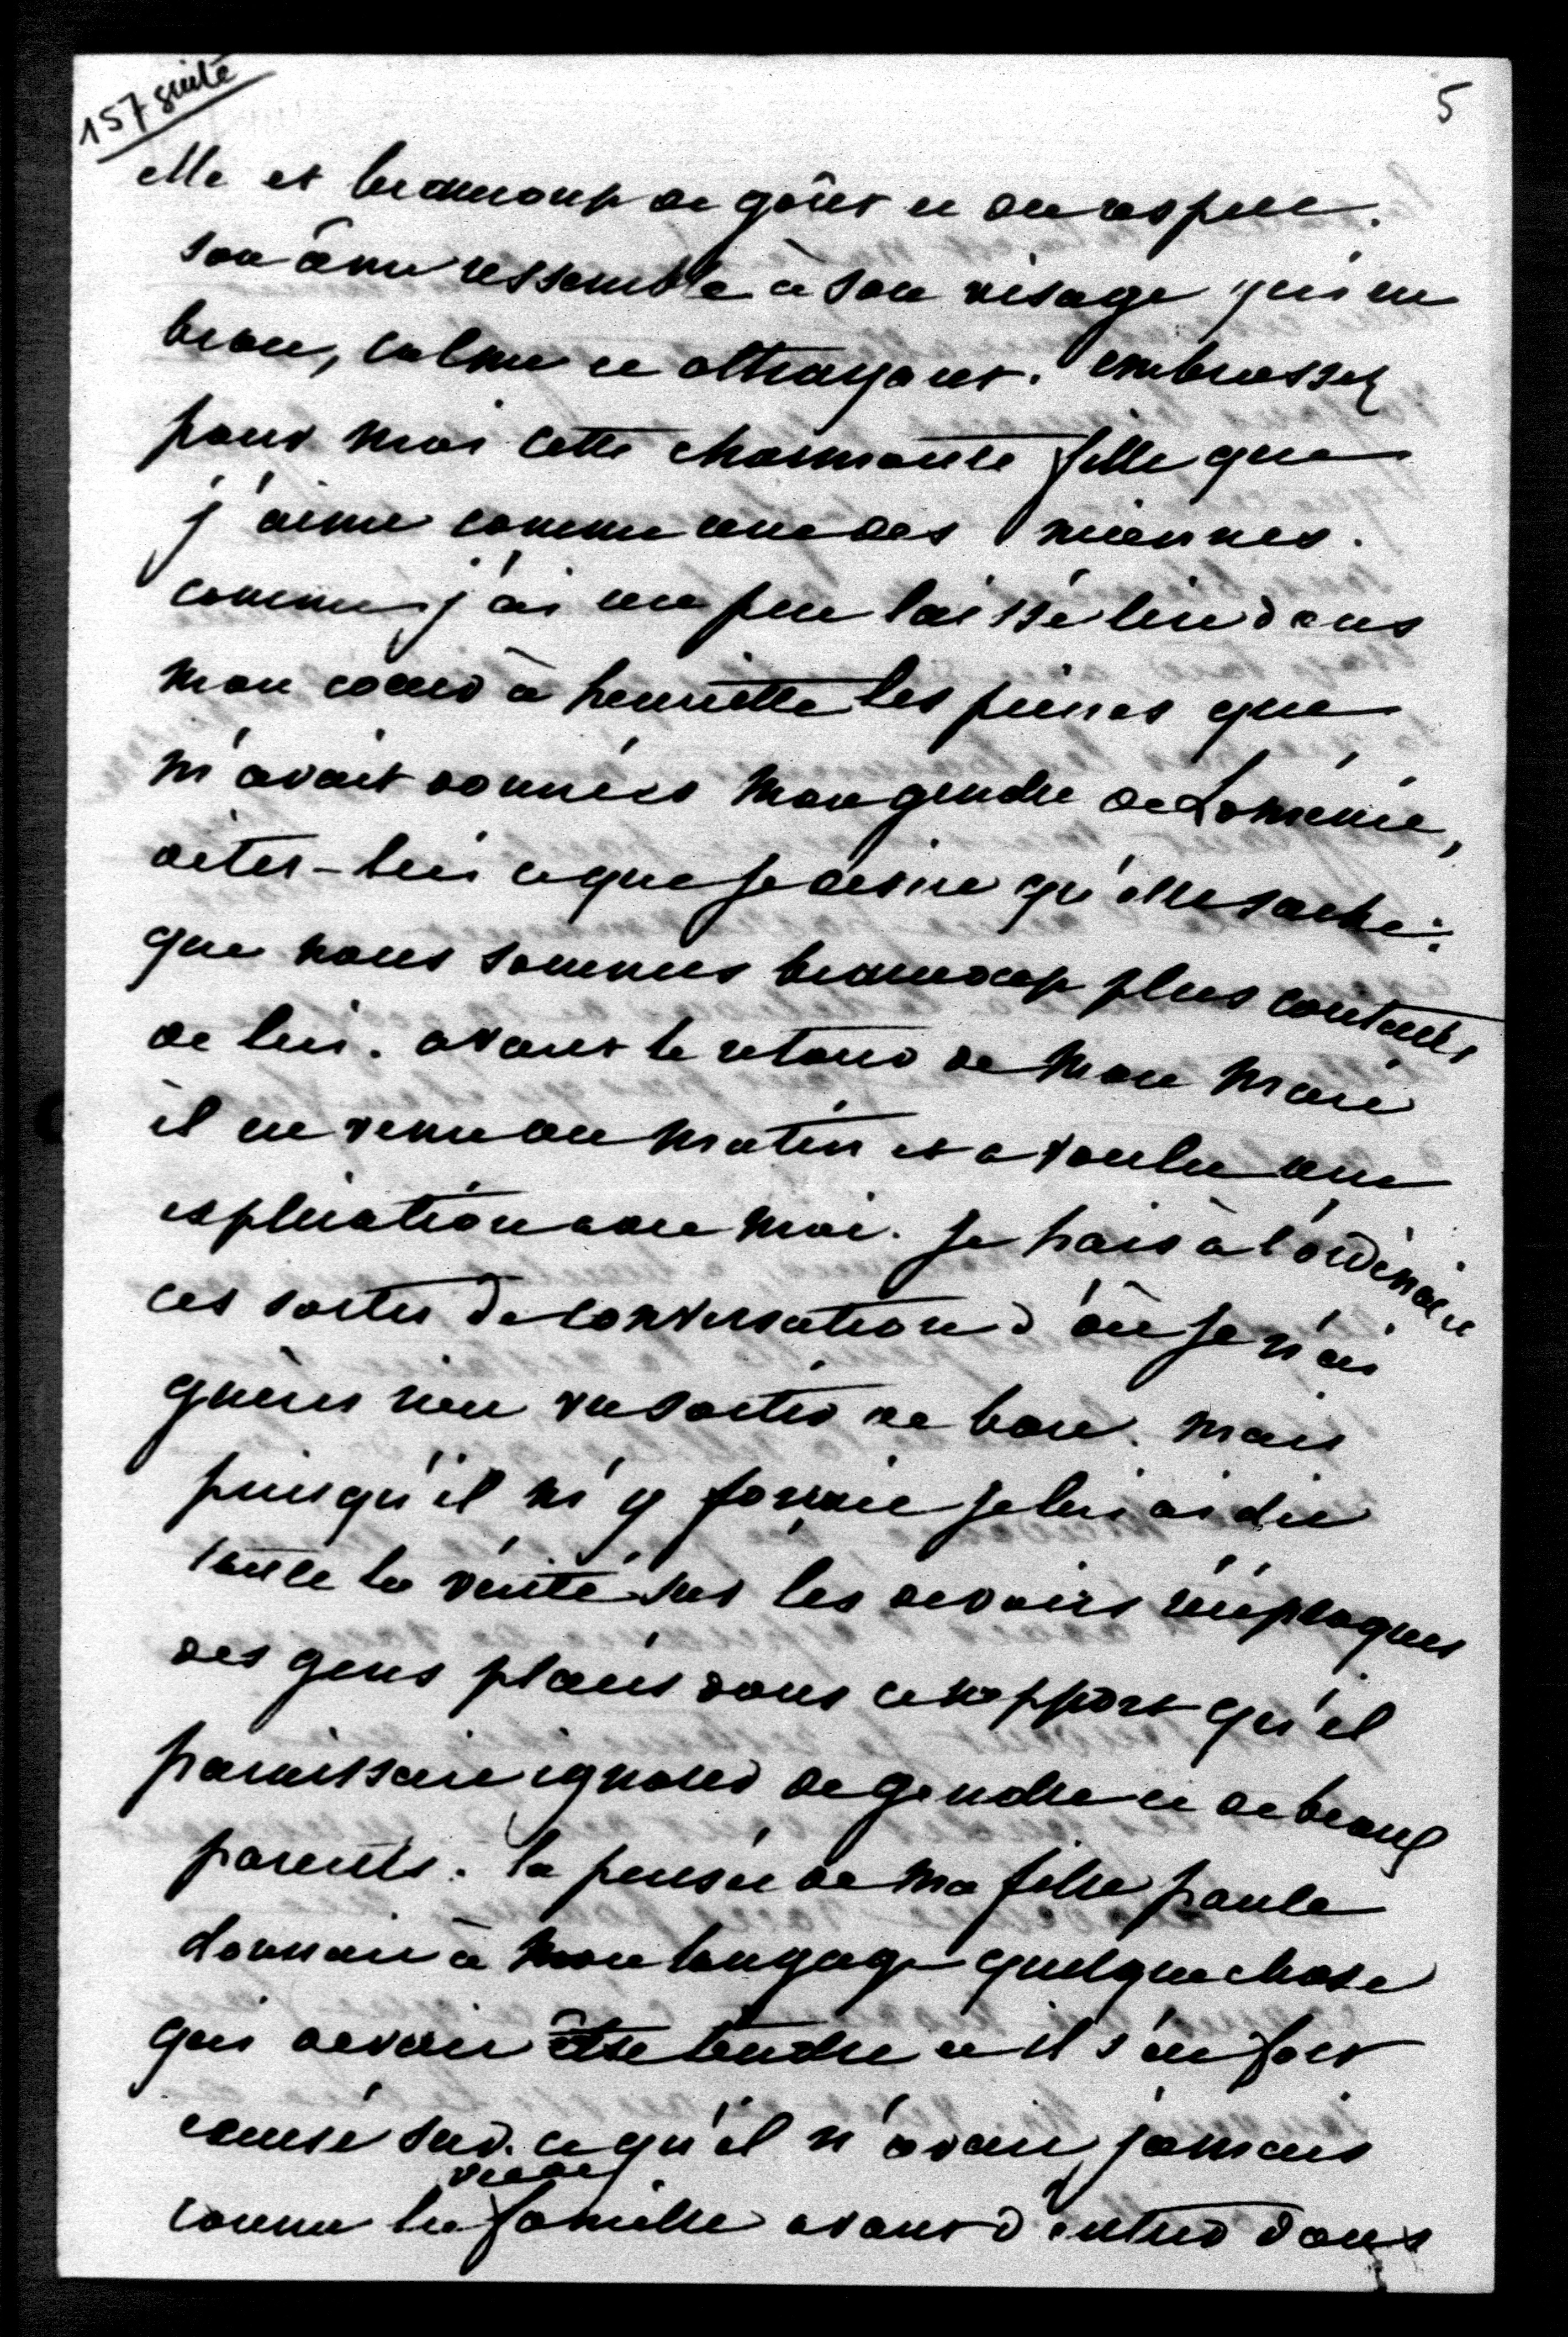 157 suite
5
elle et beaucoup de goût et du respect.
son âme ressemble à son visage qui est
beau, calme et attrayant. embrassez
pour moi cette charmante fille que
j'aime comme une des miennes.
comme j'ai un peu laissé lire dans
mon coeur à henriette les peines que
m'avait données mon gendre de Loménie,
dites-lui ce que je désire qu'elle sache:
que nous sommes beaucoup plus contents
de lui. avant le retour de mon mari
il est venu un matin et a voulu une
explication avec moi. je hais à l'ordinaire
ces sortes de conversation d'où je n'ai
guères rien vu sortir de bon. mais
puisqu'il m'y forçait je lui ai dit
toute la vérité sur les devoirs réciproques
des gens placés dans ce rapport qu'il
paraissait ignorer de gendre et de beaux
parents. la pensée de ma fille paule
donnait à mon langage quelque chose
qui devait être tendre et il s'est fort
excusé sur ce qu'il n'avait jamais
connu la vie de famille avant d'entrer dans